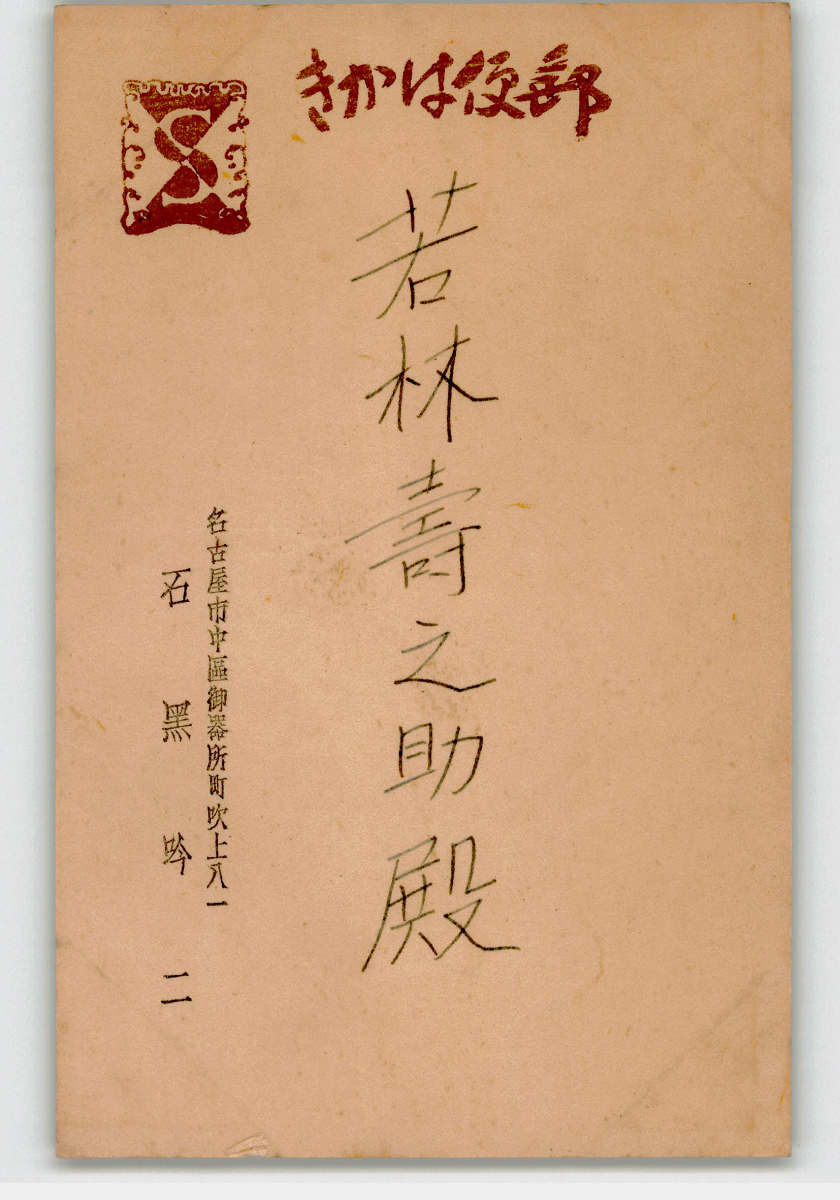 郵便はかき
若林壽之助殿
名古屋市中區御器所町吹上八一
石黑吟二